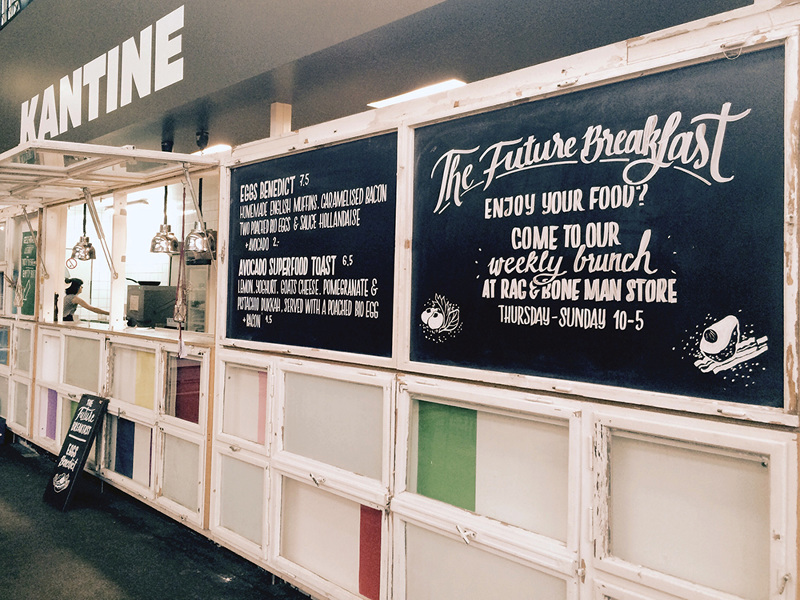 KANTINE
EGGS BENEDICT 7,5
HOMEMADE ENGLISH MUFFINS, CARAMELISED BACON
TWO POACHED BIO EGGS & SAUCE HOLLANDAISE
+ AVOCADO 2.-
AVOCADO SUPERFOOD TOAST 6,5
LEMON, YOGHURT, GOATS CHEESE, POMEGRANATE &
PISTACHIO DUKKAH, SERVED WITH A POACHED BIO EGG
+ BACON 4,5
The Future Breakfast
ENJOY YOUR FOOD?
COME TO OUR
weekly brunch
AT RAG & BONE MAN STORE
THURSDAY - SUNDAY 10-5
THE
Future
BREAKFAST
EGGS
Benedict